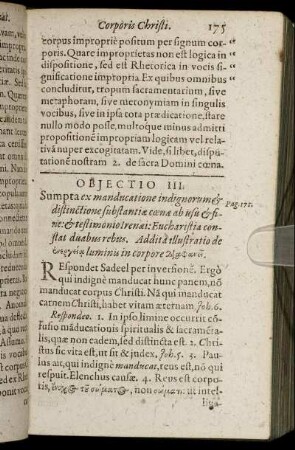 Corporis Christi. 175
corpus impropriè positum per signum cor-
poris. Quare improprietas non est logica in
dispositione, sed est Rhetorica in vocis si-
gnificatione impropria. Ex quibus omnibus
concluditur, tropum sacramentarium, sive
metaphoram, sive metonymiam in singulis
vocibus, sive in ipsa tota prædicatione, stare
nullo modo posse, multoque minus admitti
propositionē impropriam logicam vel rela-
tivâ nuper excogitatam. Vide, si libet, dispu-
tationē nostram 2. de sacra Domini cœna.
OBJECTIO III.
Sumpta ex manducatione indignorum, &
distinctione substantiæ cœnæ ab usu & fi-
ne: & testimonio Irenæi: Eucharistia con-
stat duabus rebus. Addita illustratio de
ἐνεργείᾳ luminis in corpore διαφανεῖ.
Pag. 172.
REspondet Sadeel per inversionē. Ergò
qui indignè manducat hunc panem, nō
manducat corpus Christi. Nā qui manducat
carnem Christi, habet vitam æternam Joh. 6.
Respondeo. 1. In ipso limine occurrit cō-
fusio māducationis spiritualis & sacramēta-
lis, quæ non eadem, sed distincta est. 2. Chri-
stus sic vita est, ut sit & judex, Joh. 5. 3. Pau-
lus ait, qui indignè manducat, reus est, nō qui
respuit. Elenchus causæ. 4. Reus est corpo-
tis, ἔνοχος τοῦ σώματος, non σώματι, ut intel-